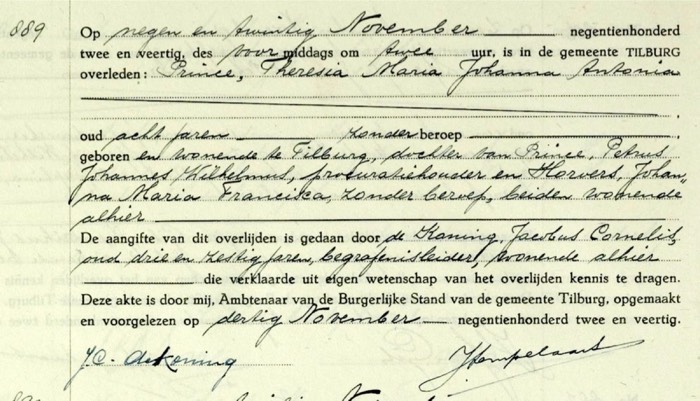 889
Op negen en twintig November negentienhonderd
twee en veertig, des voor middags om twee uur, is in de gemeente TILBURG
overleden: Prince, Theresia Maria Johanna Antonia
oud acht jaren zonder beroep
geboren en wonende te Tilburg, dochter van Prince, Petrus
Johannes Wilhelmus, procuratiehouder en Horvers, Johan-
na Maria Francisca, zonder beroep, beiden wonende
alhier
De aangifte van dit overlijden is gedaan door de Koning, Jacobus Cornelis,
oud drie en zestig jaren, begrafenisleider, wonende alhier
die verklaarde uit eigen wetenschap van het overlijden kennis te dragen.
Deze akte is door mij, Ambtenaar van de Burgerlijke Stand van de gemeente Tilburg, opgemaakt
en voorgelezen op dertig November negentienhonderd twee en veertig.
J.C. de Koning